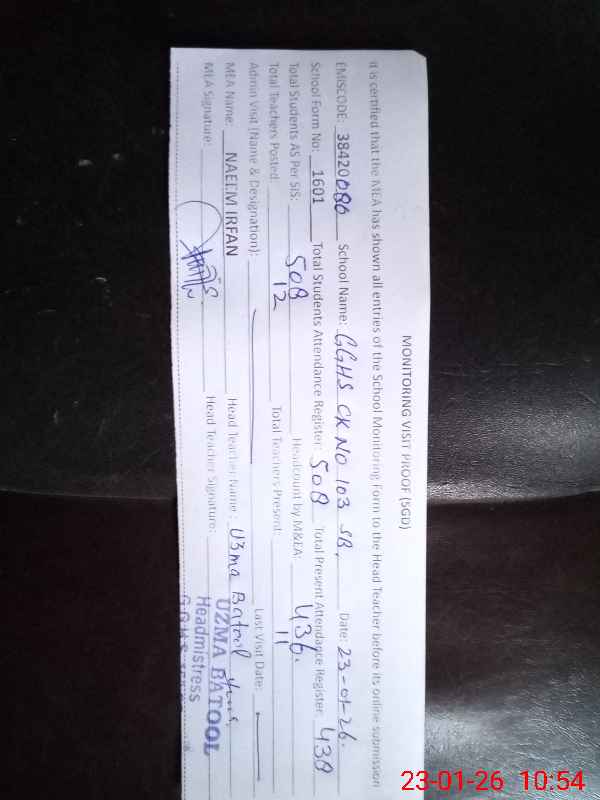 MONITORING VISIT PROOF (SGD)
It is certified that the MEA has shown all entries of the School Monitoring Form to the Head Teacher before its online submission
EMISCODE: 38420080 School Name: GGHS CK NO 103 SB. Date: 23-01-26.
School Form No: 1601 Total Students Attendance Register: 508 Total Present Attendance Register: 438
Total Students AS Per SIS: 508 Headcount by M&EA: 436.
Total Teachers Posted: 12 Total Teachers Present: 11
Admin Visit (Name & Designation): Last Visit Date:
MEA Name: NAEEM IRFAN Head Teacher Name: Uzma Batool
MEA Signature: Head Teacher Signature:
UZMA BATOOL
Headmistress
23-01-26 10:54